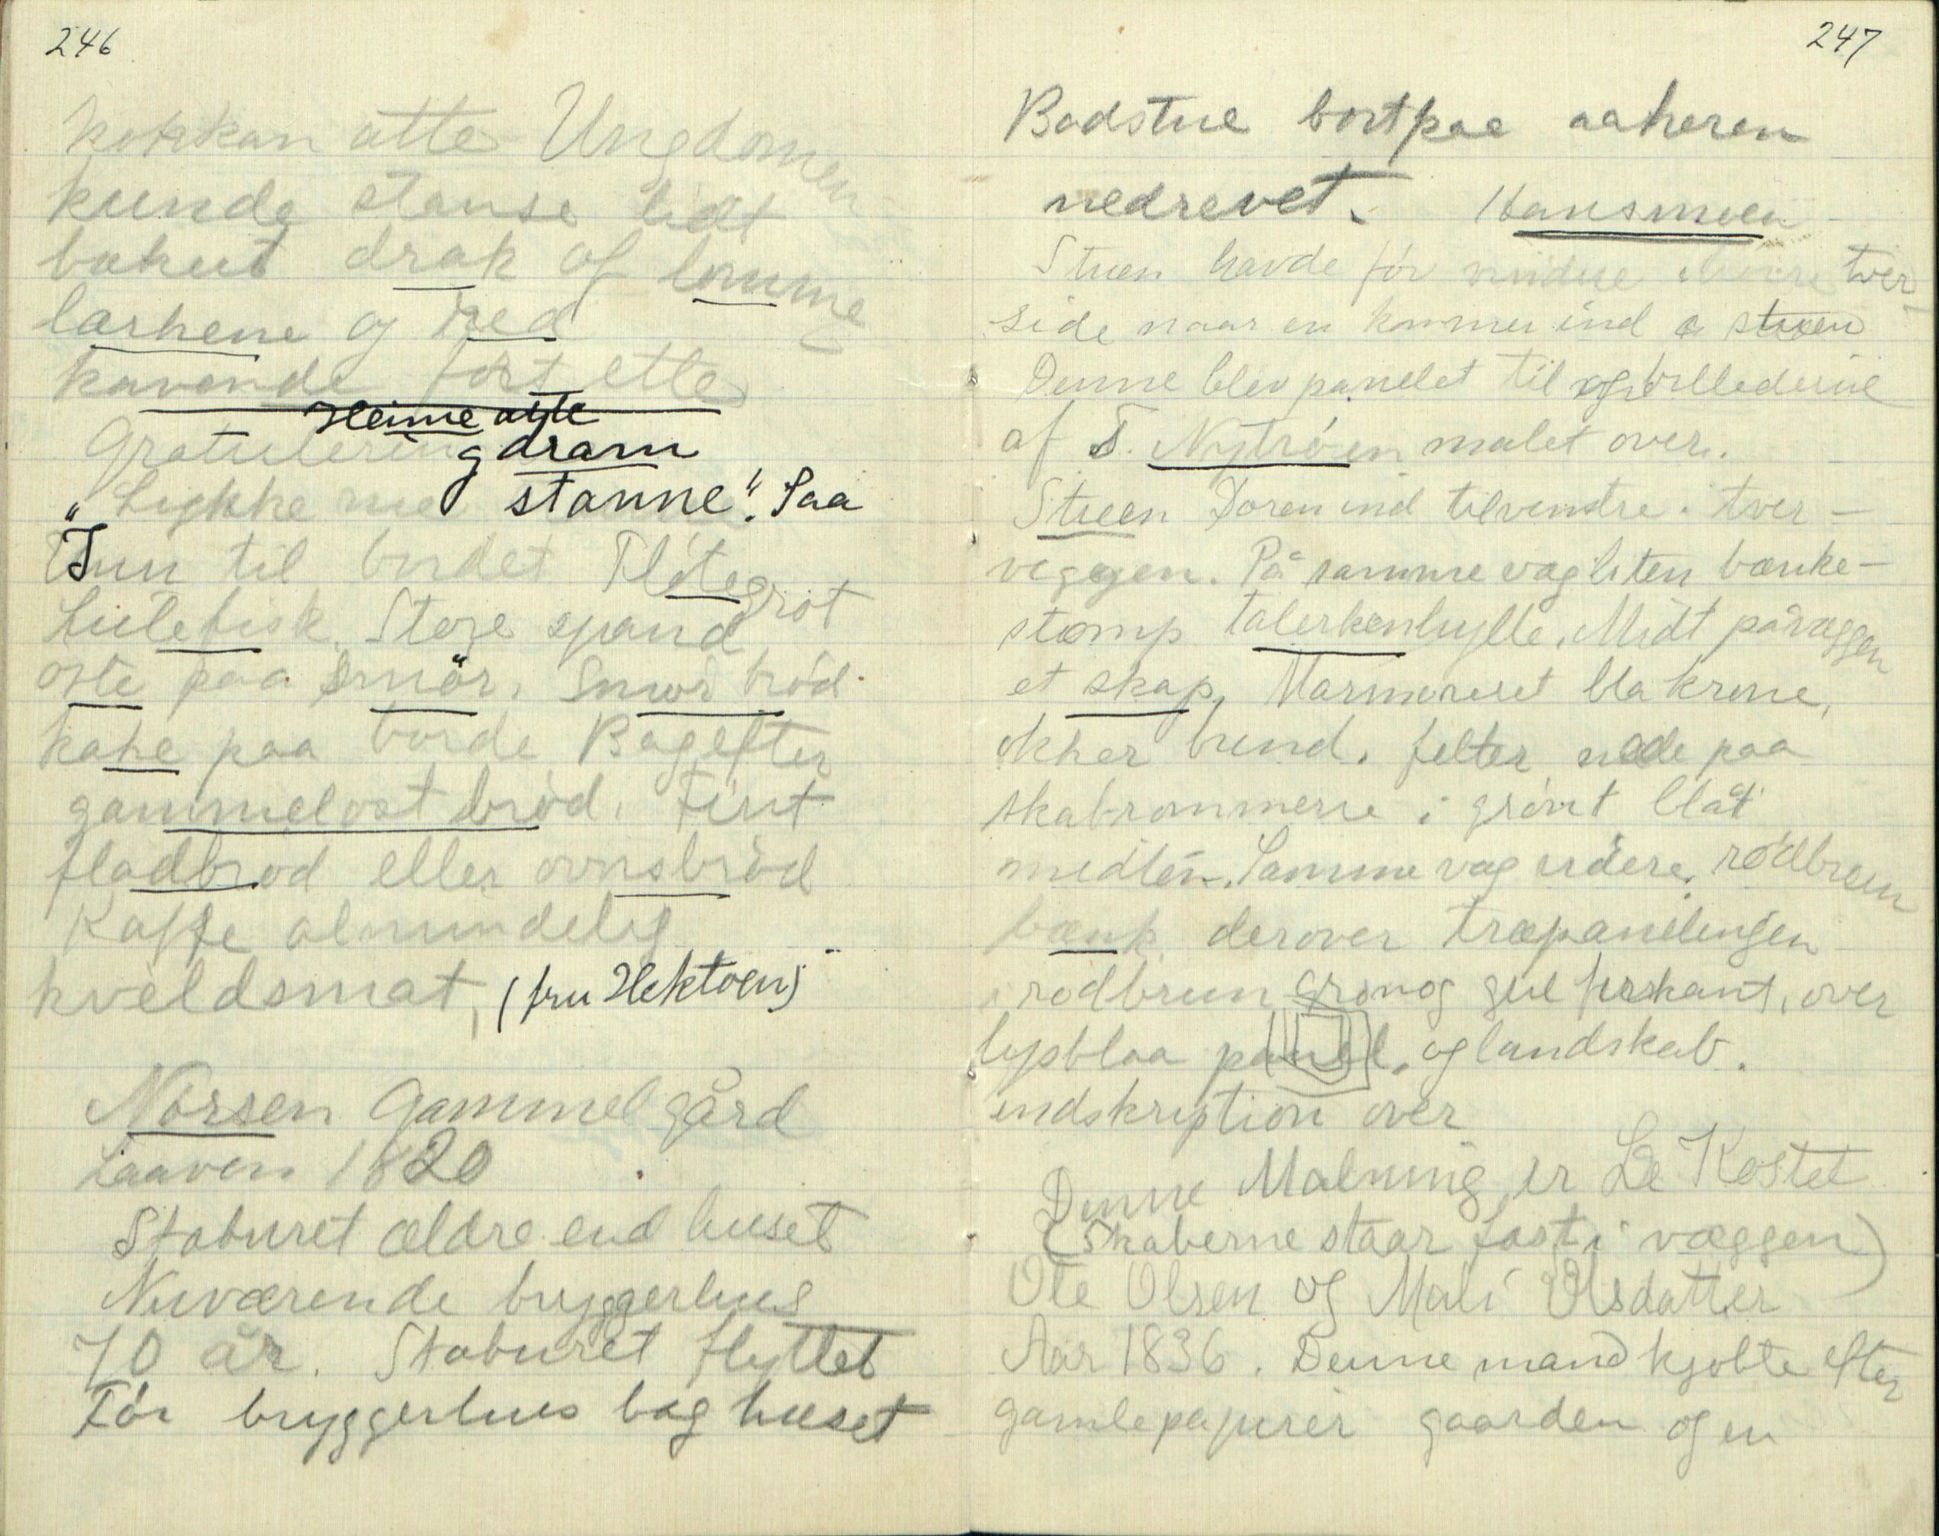 246
kokkan atte Ungdomen
kunde stanse lidt
bakut drak af lomme
lærkene og red
kavende fort ette
Heime atte
Gratulering dram
"Lykke med stanne". Saa
Inn til bordet Fløtegrøt
Lutefisk. Store spand
oste paa smör, Smør brød
kake paa borde Bagefter
gammelost brød. Fint
fladbrød eller ovnsbrød
Kaffe almindelig
kveldsmat, (fru Hektoen)
Norsen Gammel gård
Laaven 1820
Staburet ældre end huset
Nuværende bryggerhus
70 år. Staburet flyttet
Før bryggerhus bag huset
247
Badstue bortpaa aakeren
nedrevet. Hansmoen
Stuen havde før vindue tver-
side naar en kommer ind a stuen
Denne blev panelet til og billederne
af T. Nytrøen malet over.
Stuen Døren ind tilvenstre i tver-
veggen. På samme væg liten bænke-
stomp talerkenhylle. Midt på væggen
et skap, Marmoreret bla krone,
okker bund. felter nede paa
skabrommene i grønt blåt
midten. Samme væg videre, rødbrun
bænk. derover træpanelingen
i rødbrun grøn og gul firskant, over
lysblaa panel, og landskab.
indskription over
Denne Malning er Le Kostet
(Skaberne staar fast i væggen)
Ole Olsen og Mali Olsdatter
Aar 1836. Denne mand kjøbte efter
gamle papirer gaarden og en